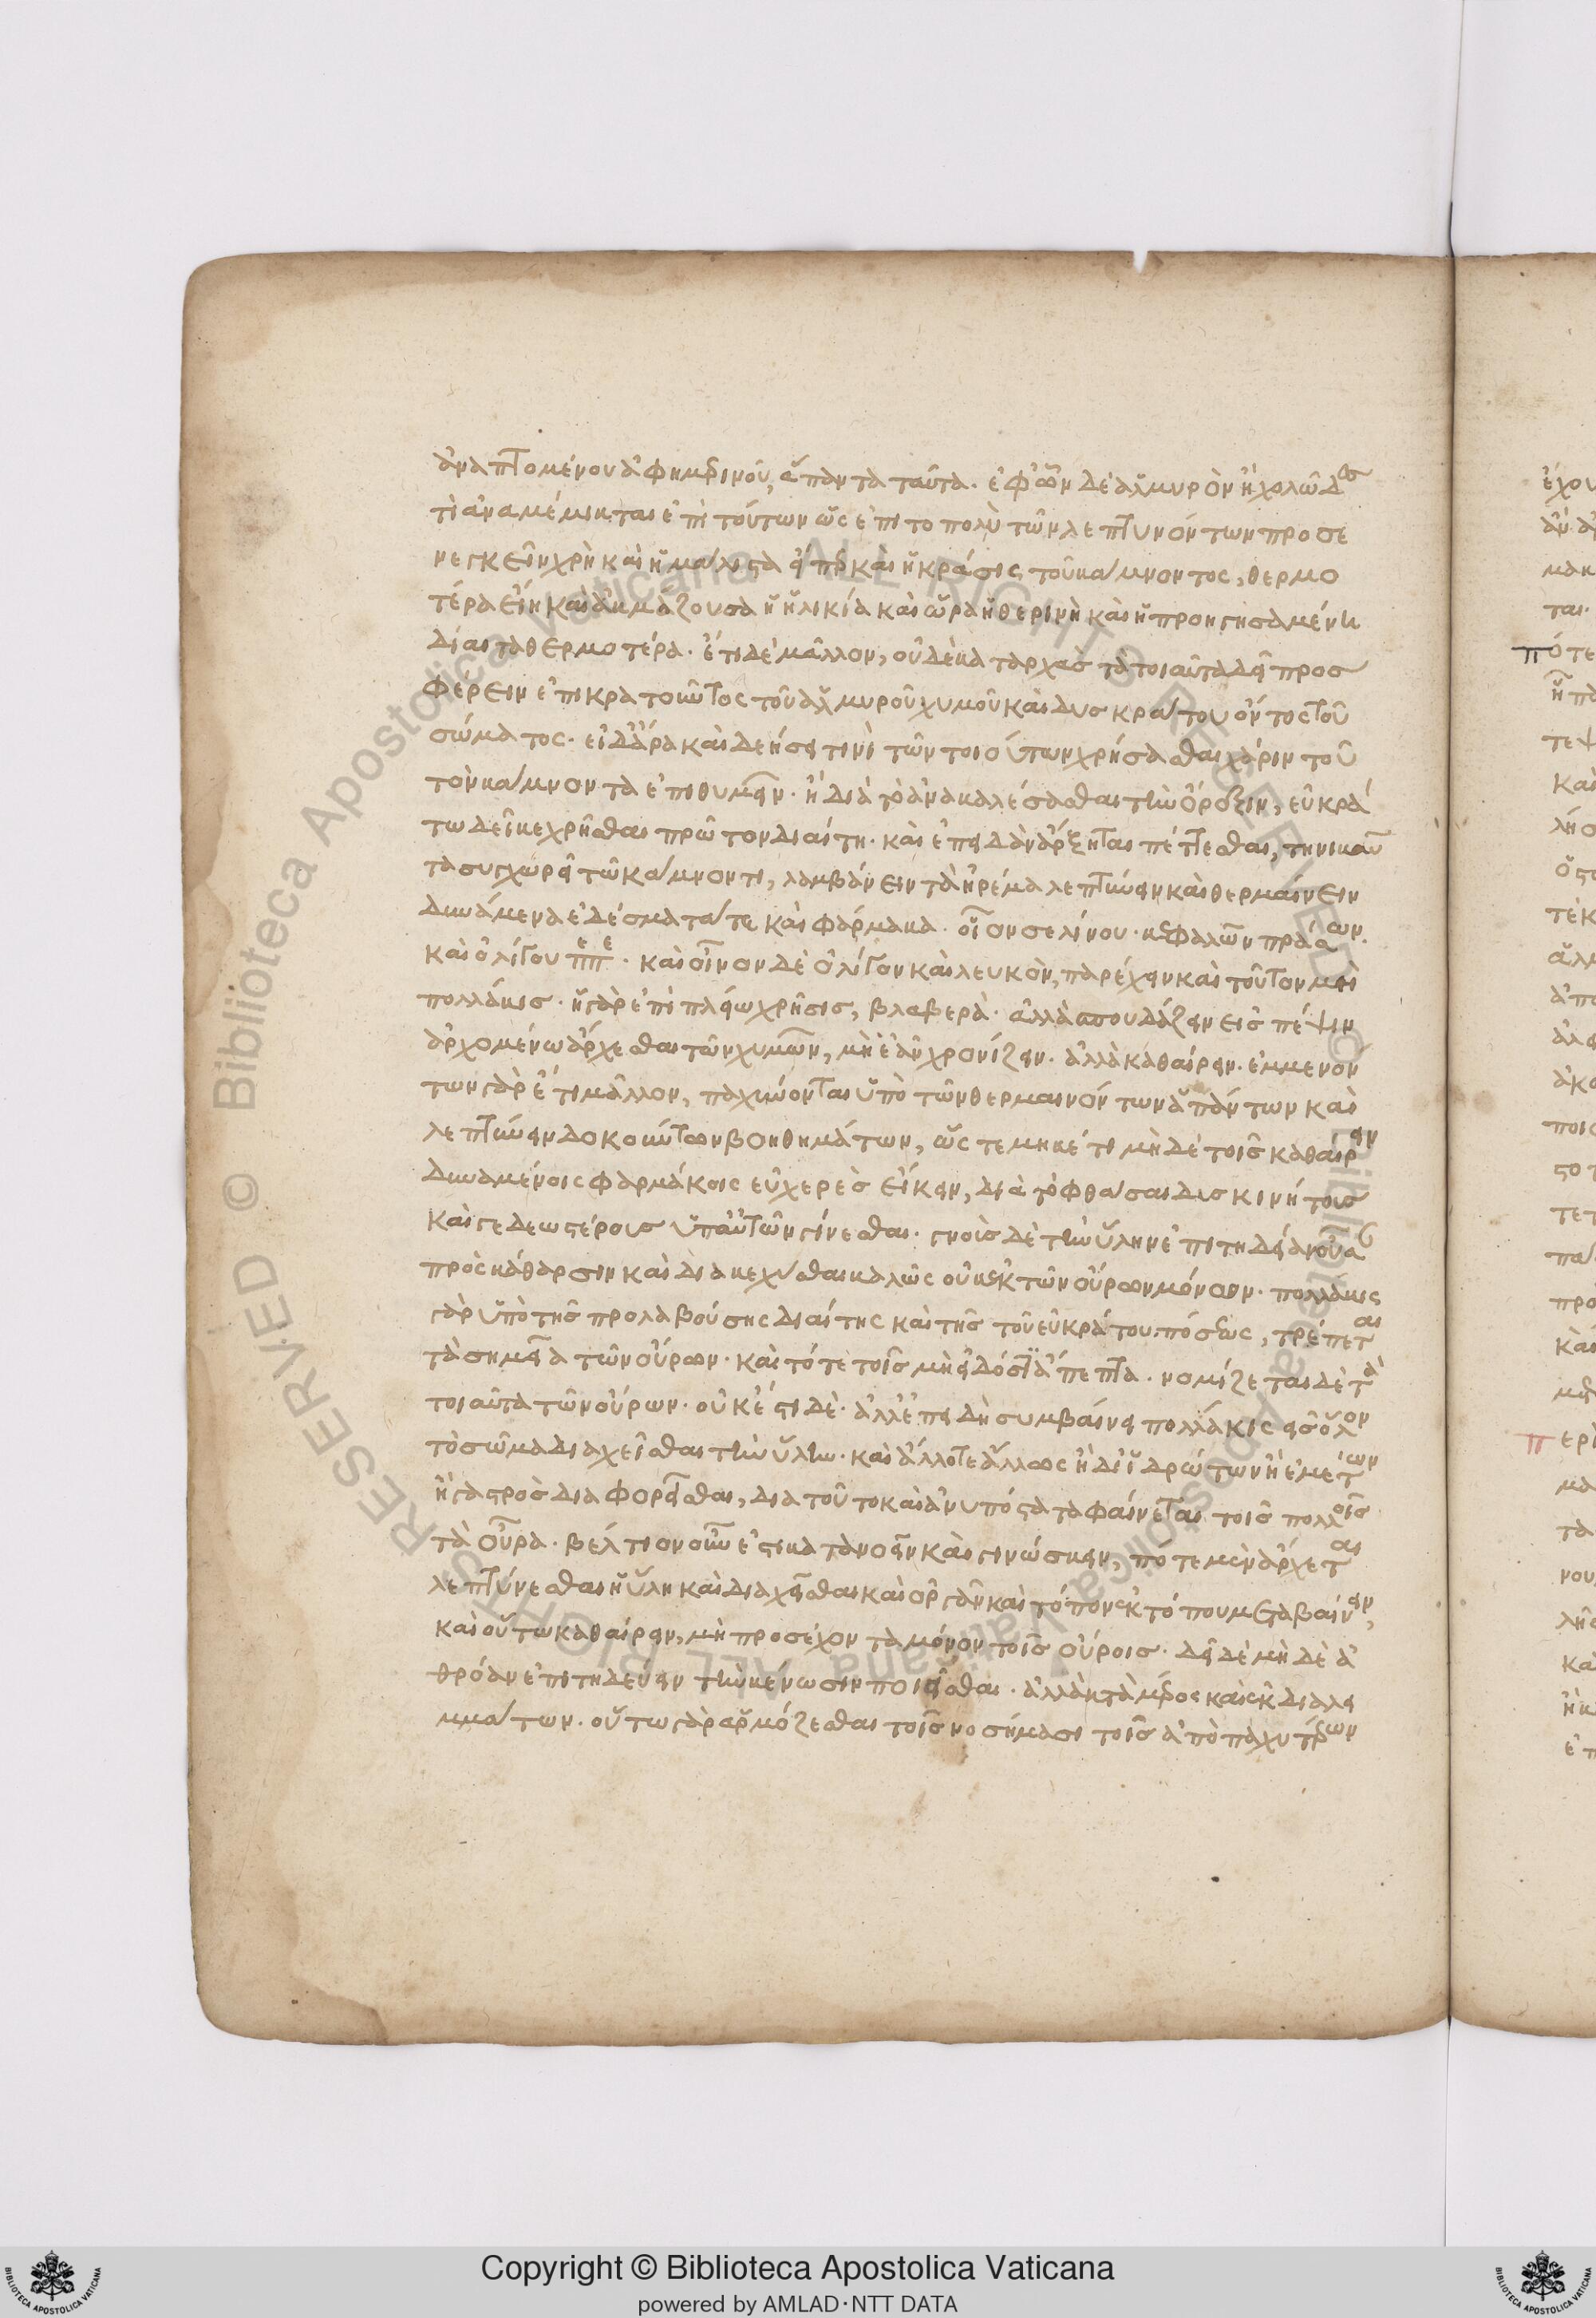 ἀναπτομένου ἀφημερινοῦ, ἅπαντα ταῦτα. ἐφ' ὧν δὲ ἁλμυρὸν ἢ χολῶδες
τι ἀναμέμικται ἐπὶ τούτων ὡς ἐπιτοπολὺ τῶν λεπτυνόντων προσε
νεγκεῖν χρὴ καὶ μάλιστα εἴπερ καὶ ἡ κράσις τοῦ κάμνοντος, θερμο
τέρα εἴη καὶ ἀκμάζουσα ἡ ἡλικία καὶ ὥρα θερινὴ καὶ ἡ προηγησαμένη
δίαιτα θερμοτέρα. ἔτι δὲ μᾶλλον, οὐδὲ κατ' ἀρχὰς τὰ τοιαῦτα δεῖ προσ
φέρειν ἐπικρατοῦντος τοῦ ἁλμυροῦ χυμοῦ καὶ δυσκράτου ὄντος τοῦ
σώματος. εἰ δ' ἄρα καὶ δεήσει τινὶ τῶν τοιούτων χρήσασθαι χάριν τοῦ
τὸν κάμνοντα ἐπιθυμεῖν. ἢ διὰ τὸ ἀνακαλέσασθαι τὴν ὄρεξιν, εὐκρά
τω δεῖ κεχρῆσθαι πρῶτον διαίτη. καὶ ἐπειδὰν ἄρξηται πέττεσθαι, τηνικαῦ
τα συγχώρει τῶ κάμνοντι, λαμβάνειν τὰ ἠρέμα λεπτύνειν καὶ θερμαίνειν
δυνάμενα ἐδέσματά τε καὶ φάρμακα. οἷον σελίνου. κεφαλῶν πράσων.
καὶ ὀλίγου πεπε. καὶ οἶνον δὲ ὀλίγον καὶ λευκὸν, παρέχειν καὶ τοῦτον μὴ
πολλάκις. ἡ γὰρ ἐπὶ πλείω χρῆσις, βλαβερὰ. ἀλλὰ σπουδάζειν εἰς πέψιν
ἀρχομένων ἄρχεσθαι τῶν χυμῶν, μὴ ἐὰν χρονίζειν. ἀλλὰ καθαίρειν. ἐμμενόν
των γὰρ ἔτι μᾶλλον, παχύνονται ὑπὸ τῶν θερμαινόντων ἁπάντων καὶ
λεπτύνειν δοκούντων βοηθημάτων, ὥστε μηκέτι μὴ δὲ τοῖς καθαίρειν
δυναμένοις φαρμάκοις εὐχερὲς εἴκειν, διὰ τὸ φθάσαι δυσκινήτοις
καὶ γεδεωστέροις ὑπ' αὐτῶν γίνεσθαι. γνοὺς δὲ τὴν ὕλην ἐπιτηδείαν οὖσαν
πρὸς κάθαρσιν καὶ διακεχύσθαι καλῶς οὐκ ἐκ τῶν οὔρων μόνον. πολλάκις
γὰρ ὑπὸ τῆς προλαβούσης διαίτης καὶ τῆς τοῦ εὐκράτου πόσεως, τρέπεται
τὰ σημεῖα τῶν οὔρων. καὶ τότε τοῖς μὴ εἰδόσι ἄπεπτα. νομίζεται δὲ τὰ
τοιαῦτα τῶν οὔρων. οὐκ ἔστι δὲ. ἀλλ' ἐπειδὴ συμβαίνει πολλάκις εἰς ὅλον
τὸ σῶμα διαχεῖσθαι τὴν ὕλην. καὶ ἄλλοτε ἄλλως ἢ δι' ἱδρώτων ἢ ἐμέτων
ἢ γαστρὸς διαφορεῖσθαι, δια τοῦτο καὶ ἀνυπόστατα φαίνεται τοῖς πολλοῖς
τὰ οὖρα. βέλτιον οὖν ἐστι κατανοεῖν καὶ γινώσκειν, πότε μὲν ἄρχεται
λεπτύνεσθαι ἡ ὕλη καὶ διαχεῖσθαι καὶ ὀργᾶν καὶ τόπον ἐκ τόπου μεταβαίνειν,
καὶ οὕτω καθαίρειν, μὴ προσέχοντα μόνον τοῖς οὔροις. δεῖ δὲ μὴ δὲ ἀ
θρόαν ἐπιτηδεύειν τὴν κένωσιν ποιεῖσθαι. ἀλλὰ κατὰ μέρος καὶ ἐκ διαλει
μμάτων. οὕτω γὰρ ἁρμόζεσθαι τοῖς νοσήμασι τοῖς ἀπὸ παχυτέρων